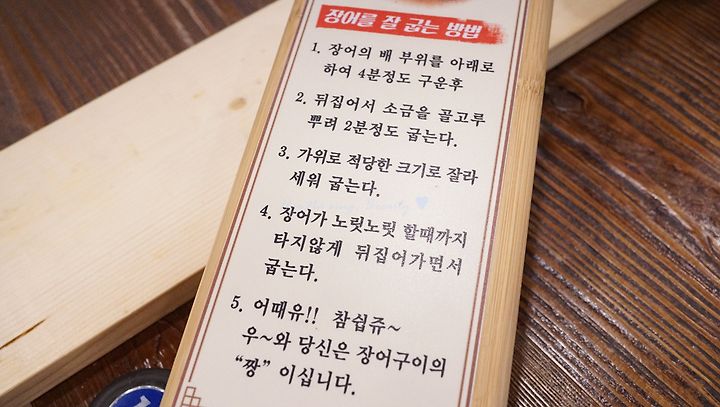 장어를 잘 굽는 방법
1. 장어의 배 부위를 아래로
하여 4분정도 구운후
2. 뒤집어서 소금을 골고루
뿌려 2분정도 굽는다.
3. 가위로 적당한 크기로 잘라
세워 굽는다.
4. 장어가 노릿노릿 할때까지
타지않게 뒤집어가면서
굽는다.
5. 어때유!! 참쉽쥬~
우~와 당신은 장어구이의
“짱” 이십니다.